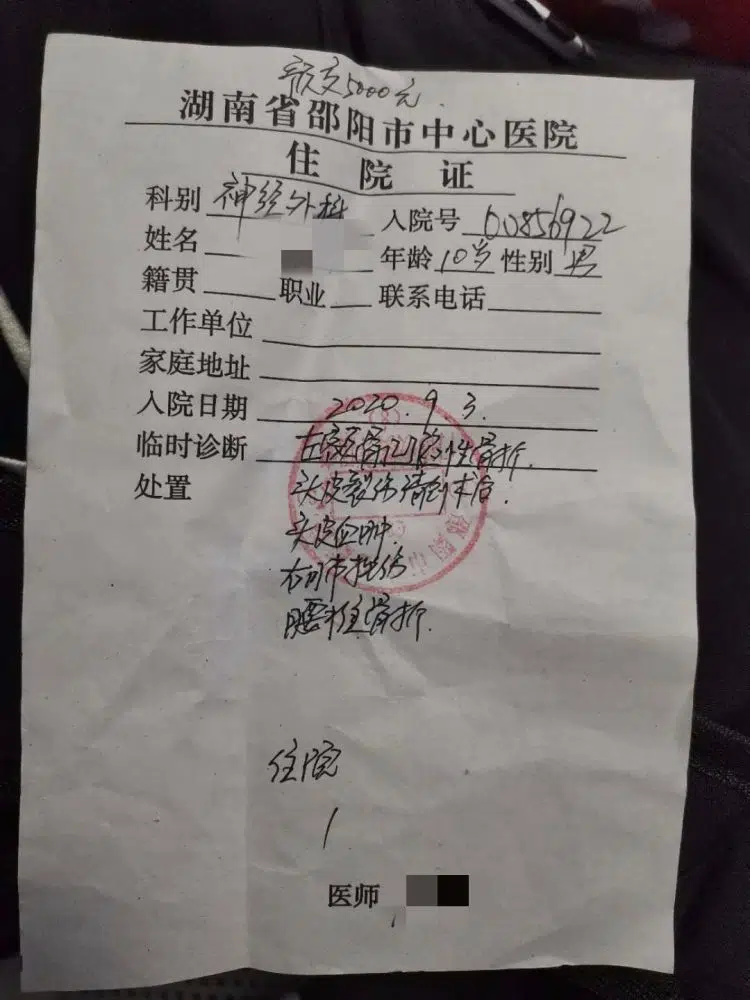 预交5000元.
湖南省邵阳市中心医院
住院证
科别 神经外科 入院号 00856922
姓名 年龄 10岁 性别 男
籍贯 职业 联系电话
工作单位
家庭地址
入院日期 2020.9.3.
临时诊断 左额骨凹陷性骨折.
处置 头皮裂伤清创术后.
头皮血肿.
右肺挫伤
腰椎骨折.
住院
医师